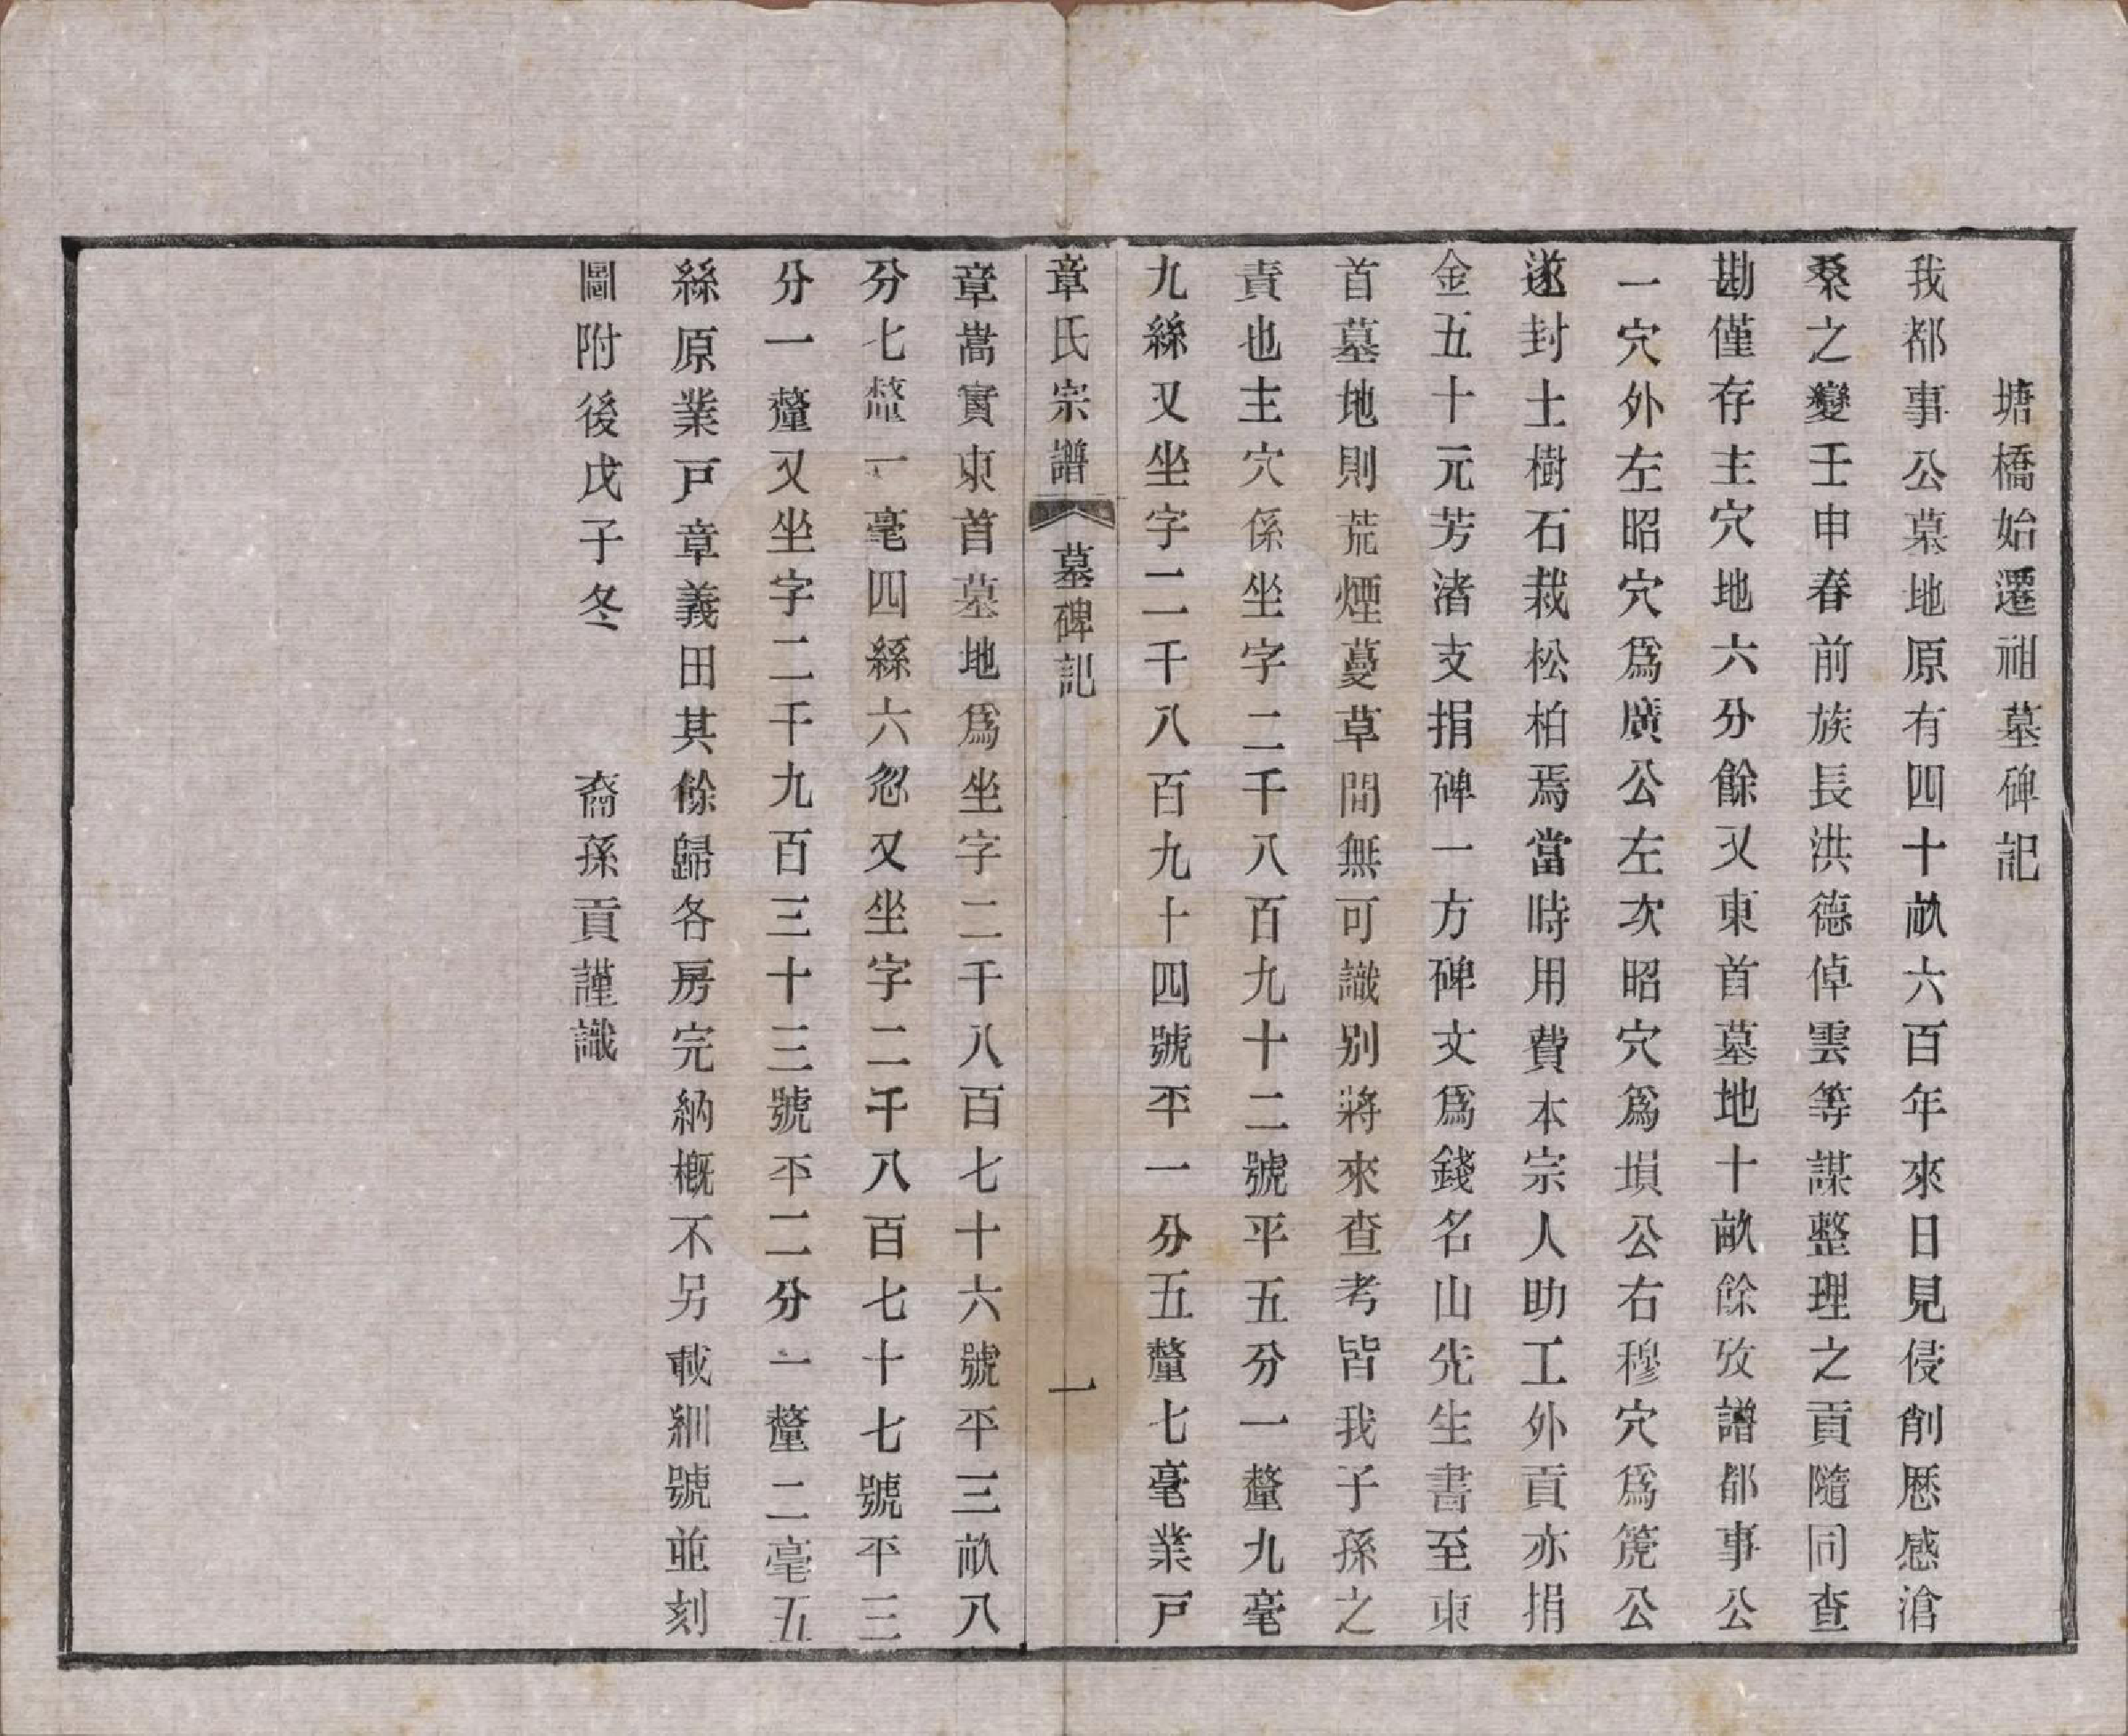 塘橋始遷祖墓碑記
我都事公墓地原有四十畝六百年來日見侵削厯感滄
桑之變壬申春前族長洪德倬雲等謀整理之貢隨同查
勘僅存主穴地六分餘又東首墓地十畝餘攷譜都事公
一穴外左昭穴爲廣公左次昭穴爲塤公右穆穴爲箎公
遂封土樹石栽松柏焉當時用費本宗人助工外貢亦捐
金五十元芳渚支捐碑一方碑文爲錢名山先生書至東
首墓地則荒煙蔓草間無可識別將來查考皆我子孫之
責也主穴係坐字二千八百九十二號平五分一釐九毫
九絲又坐字二千八百九十四號平一分五釐七毫業戶
章氏宗譜
墓碑記
一
章嵩實東首墓地爲坐字二千八百七十六號平三畝八
分七釐一毫四絲六忽又坐字二千八百七十七號平三
分一釐又坐字二千九百三十三號平二分一釐二毫五
絲原業戶章義田其餘歸各房完納概不另載細號並刻
圖附後戊子冬 裔孫貢謹識